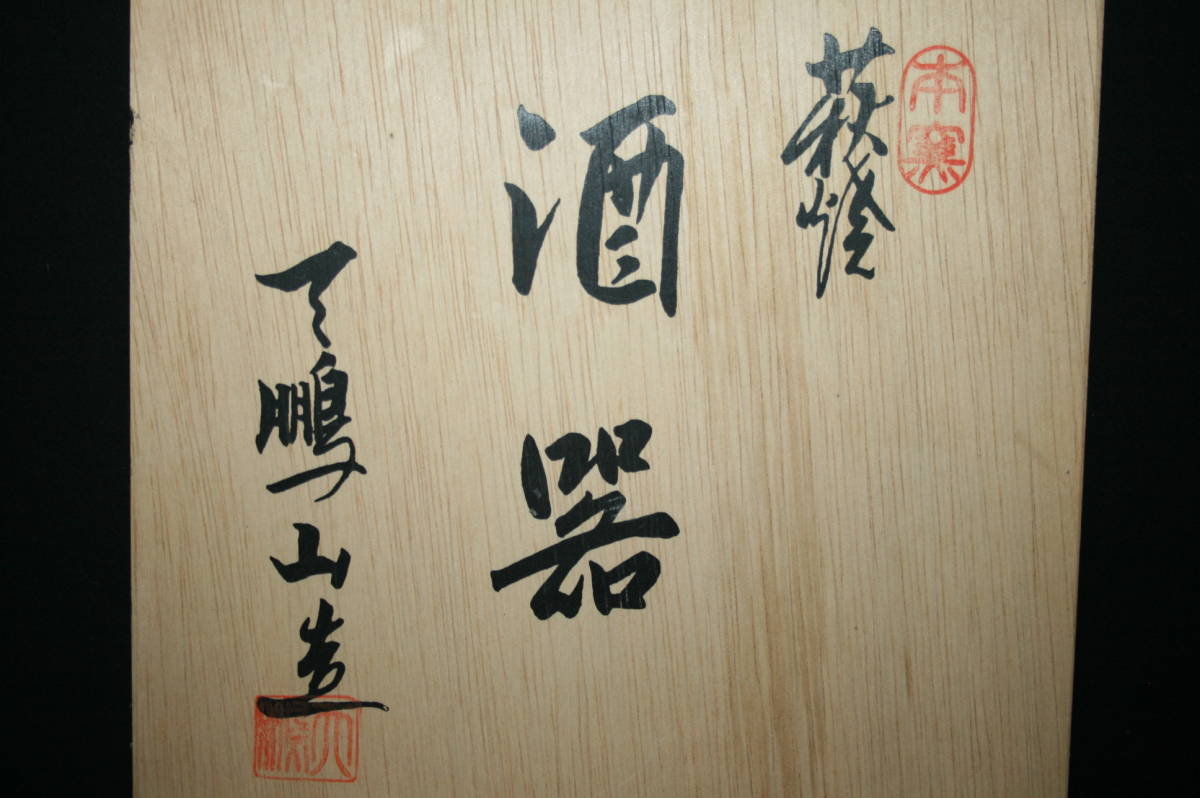 本窯
萩焼
酒器
天鵬山造